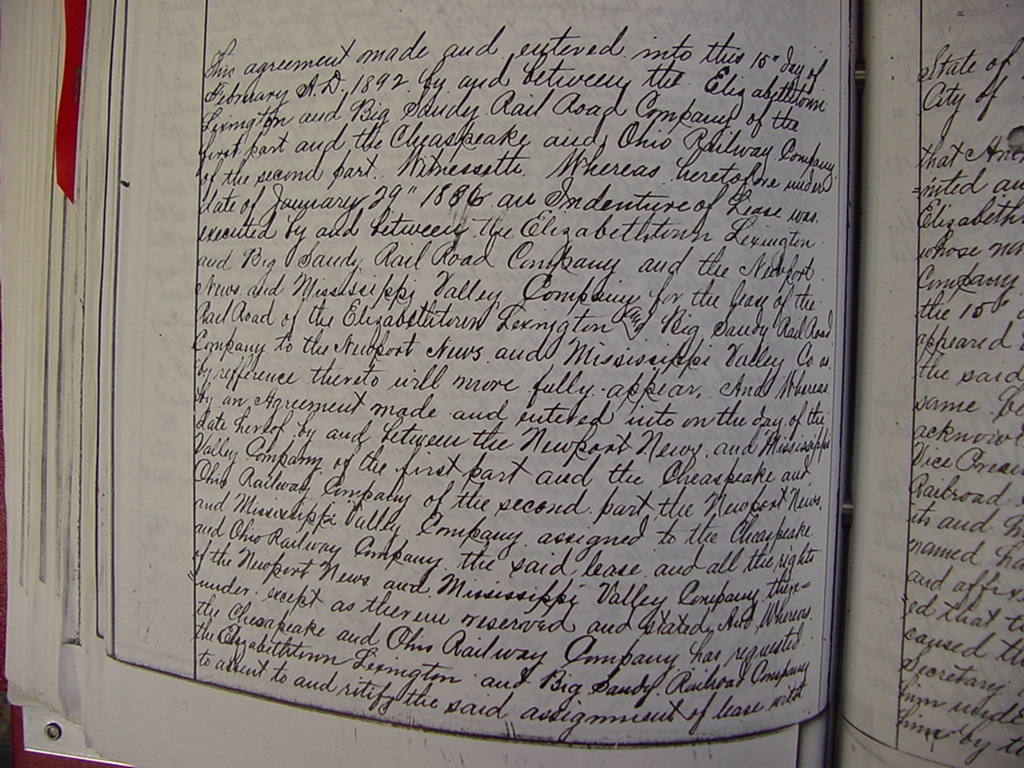 This agreement made and entered into this 15" day of
February A.D. 1892 by and between the Elizabethtown
Lexington and Big Sandy Rail Road Company of the
first part and the Cheaspeake and Ohio Railway Company
of the second part. Witnesseth. Whereas heretofore under
date of January 29" 1886 an Indenture of Lease was
executed by and between the Elizabethtown Lexington
and Big Sandy Rail Road Company and the Newport
News and Mississippi Valley Company for the lease of the
Rail Road of the Elizabethtown Lexington and Big Sandy Rail Road
Company to the Newport News and Mississippi Valley Co as
by refference thereto will more fully appear. And Whereas
by an Agreement made and entered into on the day of the
date hereof by and between the Newport News and Mississippi
Valley Company of the first part and the Cheaspeake and
Ohio Railway Company of the second part the Newport News
and Mississippi Valley Company assigned to the Cheaspeake
and Ohio Railway Company the said lease and all the rights
of the Newport News and Mississippi Valley Company there=
=under except as therein reserved and stated, And Whereas
the Chesapeake and Ohio Railway Company has requested
the Elizabethtown Lexington and Big Sandy Railroad Company
to assent to and ritify the said assignment of lease with
State of
City of
that
=inted an
Elizabeth
whose na
Company
the 15"
appeared
the said
same be
acknow
Vice Presi
Railroad
its and h
named ha
and affix
ed that t
caused th
Secretary

time by t